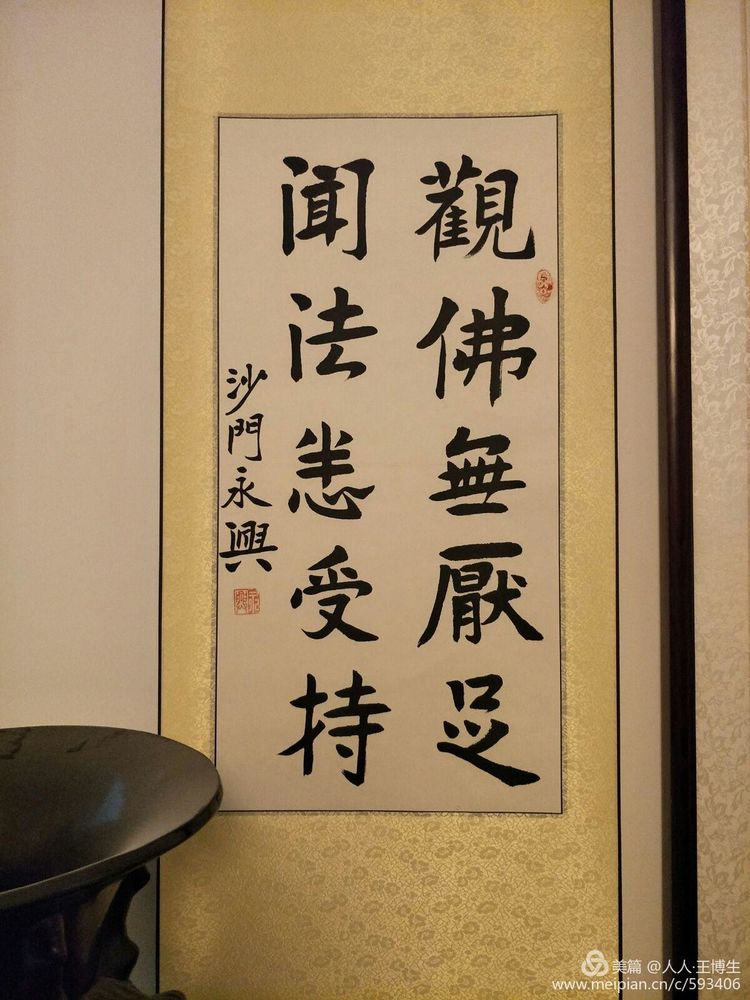 觀佛無厭足
聞法悉受持
沙門永興
美篇 @人人·王博生
www.meipian.cn/c/593406